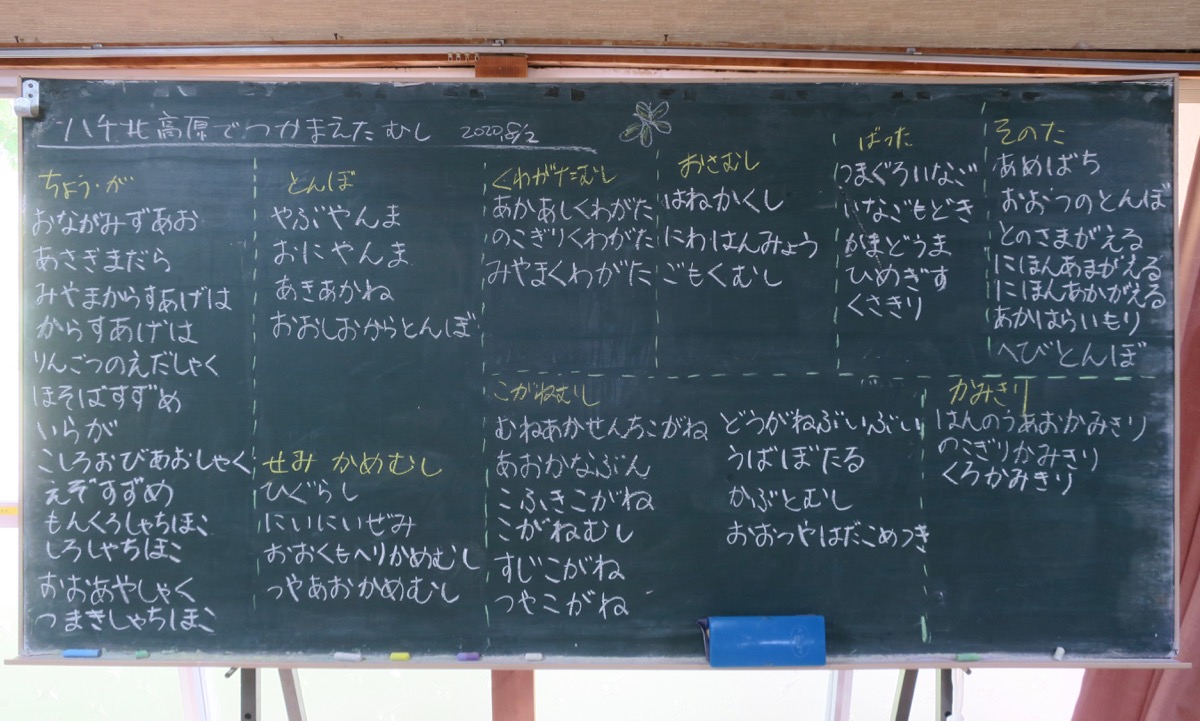 ハチ北高原でつかまえたむし 2020.8/2
ちょう・が
おながみずあお
あさぎまだら
みやまからすあげは
からすあげは
りんごつのえだしゃく
ほそばすずめ
いらが
こしろおびあおしゃく
えぞすずめ
もんくろしゃちほこ
しろしゃちほこ
おおあやしゃく
つまきしゃちほこ
とんぼ
やぶやんま
おにやんま
あきあかね
おおしおからとんぼ
せみ かめむし
ひぐらし
にいにいぜみ
おおくもへりかめむし
つやあおかめむし
くわがたむし
あかあしくわがた
のこぎりくわがた
みやまくわがた
おさむし
はねかくし
にわはんみょう
ごもくむし
ばった
つまぐろいなご
いなごもどき
かまどうま
ひめぎす
くさきり
そのた
あめばち
おおつのとんぼ
とのさまがえる
にほんあまがえる
にほんあかがえる
あかはらいもり
へびとんぼ
こがねむし
むねあかせんちこがね
あおかなぶん
こふきこがね
こがねむし
すじこがね
つやこがね
どうがねぶいぶい
うばぼたる
かぶとむし
おおつやはだこめつき
かみきり
はんのうあおかみきり
のこぎりかみきり
くろかみきり